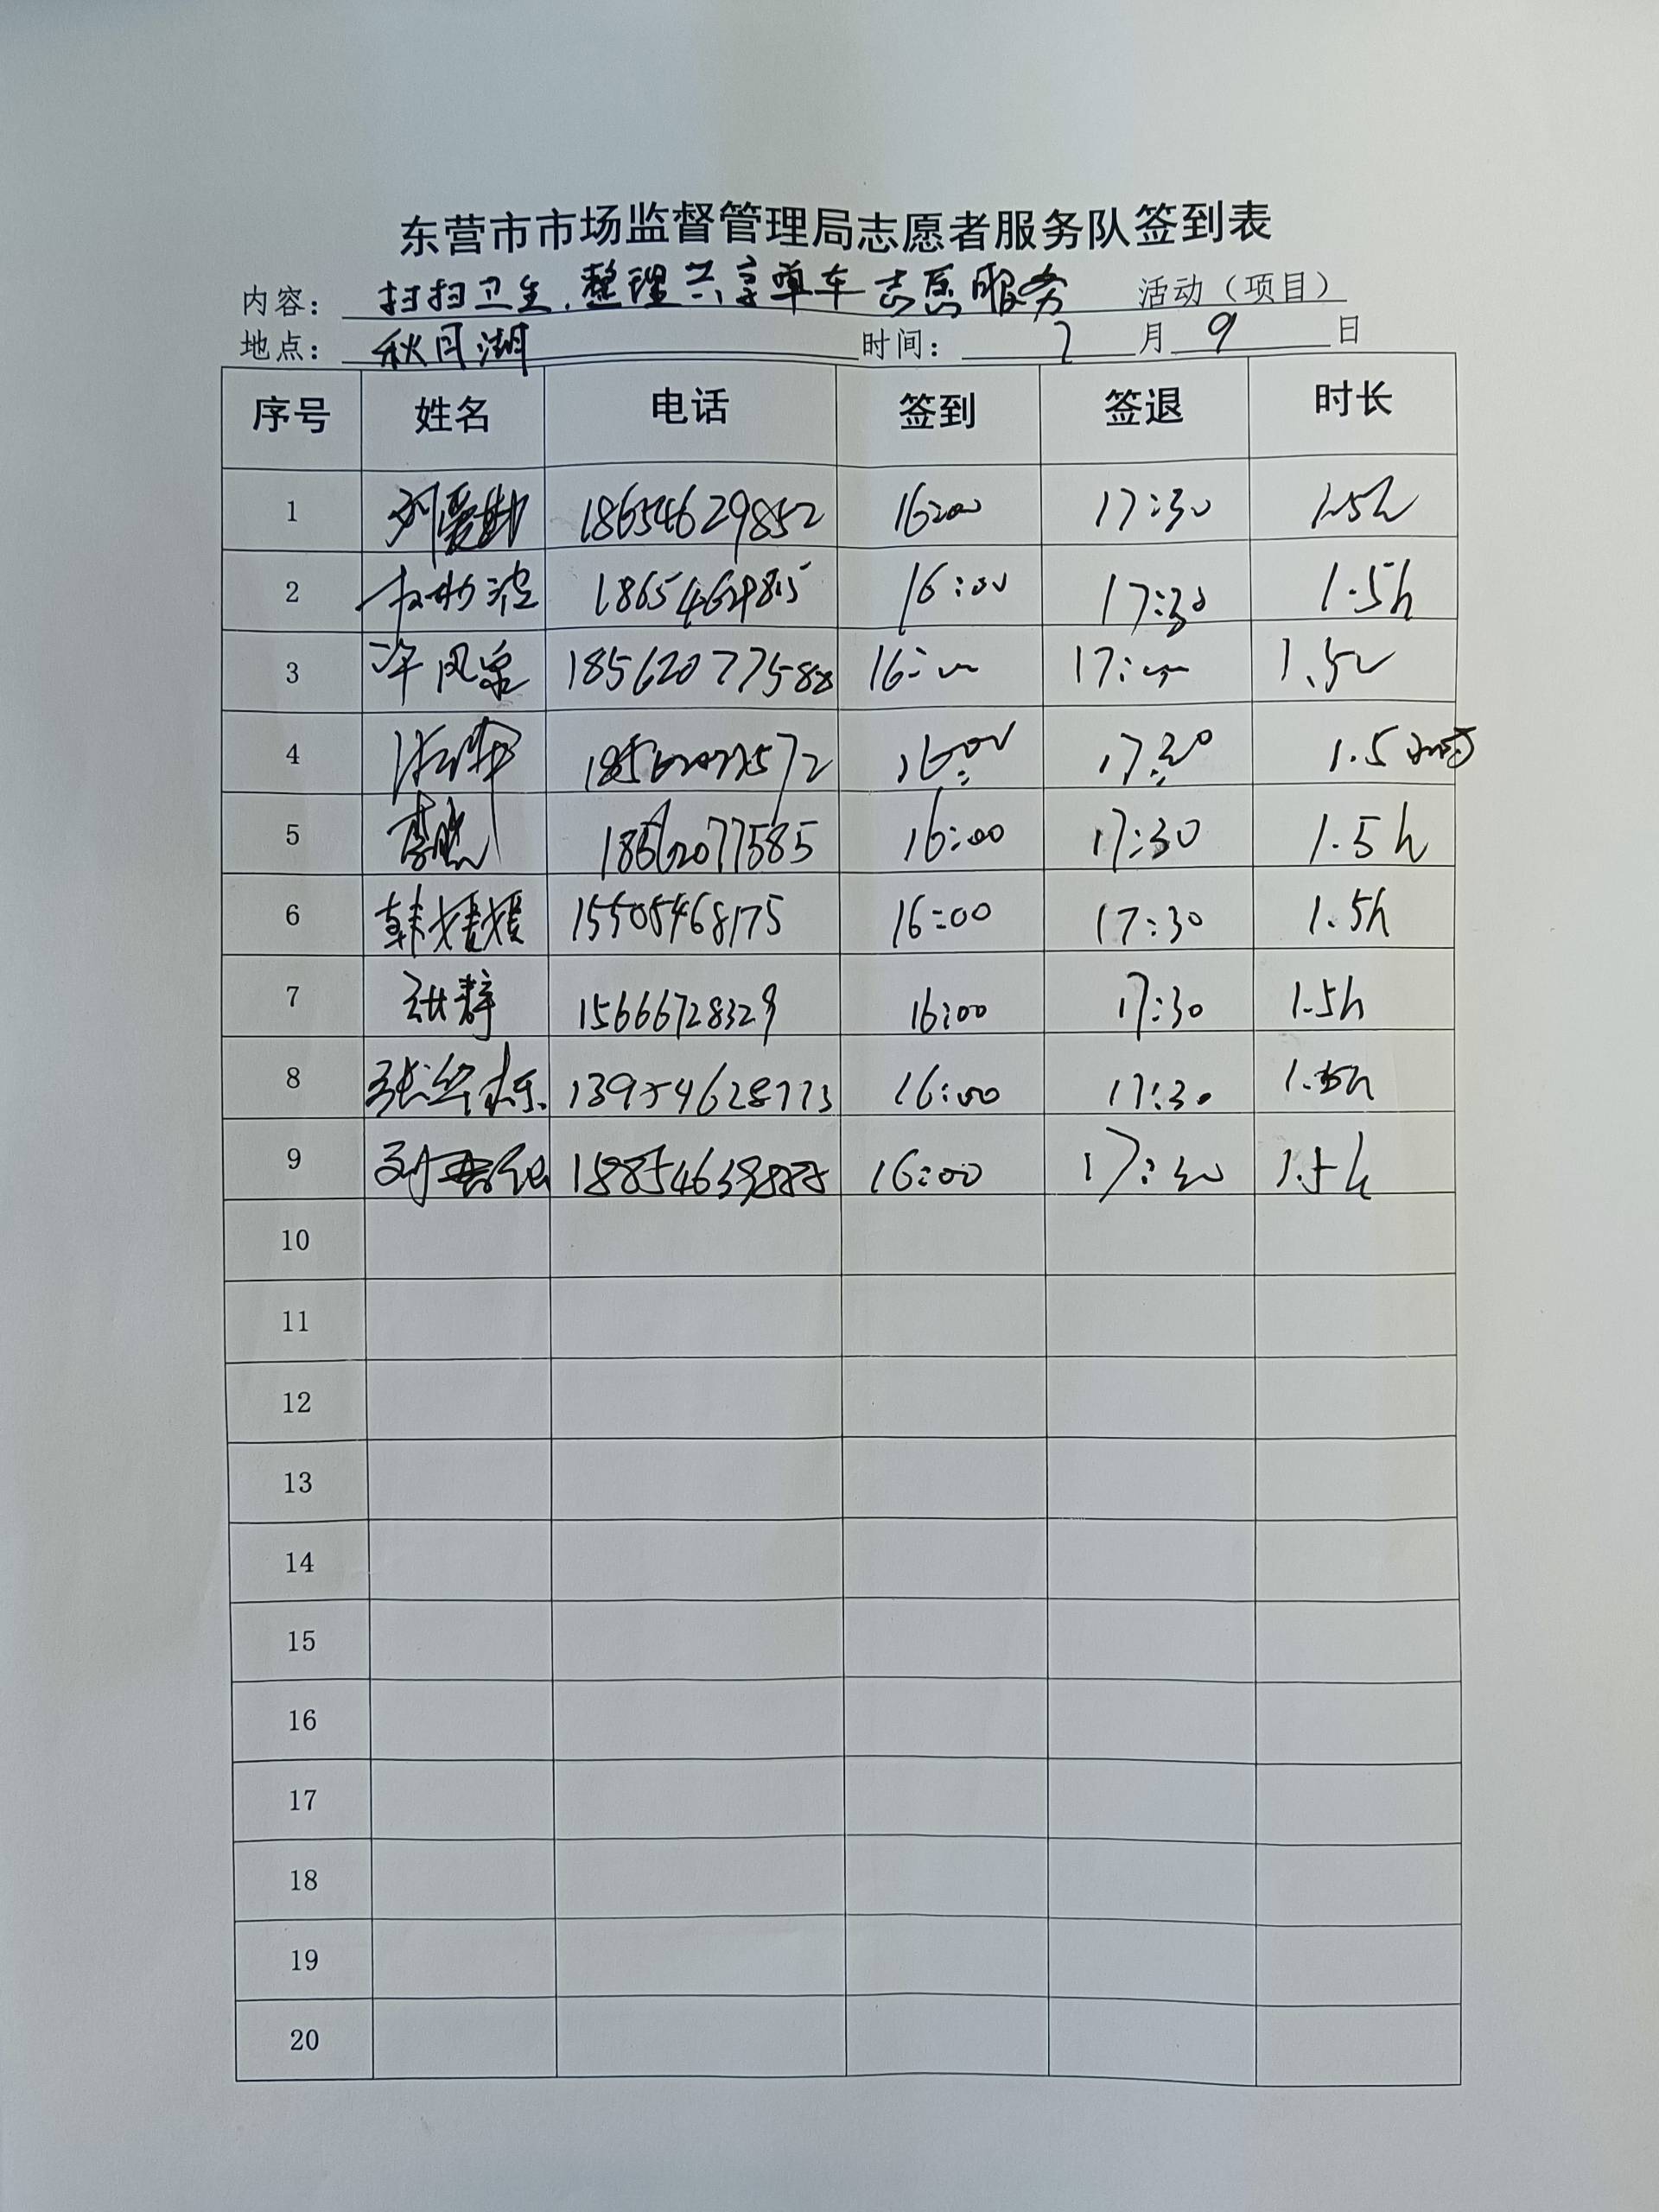 东营市市场监督管理局志愿者服务队签到表
内容：扫扫卫生,整理共享单车志愿服务 活动（项目）
地点：秋月湖 时间：7月9日
序号 姓名 电话 签到 签退 时长
1 18654629852 16:00 17:30 1.5h
2 16:00 17:30 1.5h
3 冷风泉 18562077588 16: 17: 1.5
4 16:00 17:30 1.5小时
5 李晓 18562077585 16:00 17:30 1.5h
6 韩媛媛 15505468175 16:00 17:30 1.5h
7 张群 15666728329 16:00 17:30 1.5h
8 张华东 13954628773 16:00 17:30 1.5h
9 16:00 17:30 1.5h
10
11
12
13
14
15
16
17
18
19
20